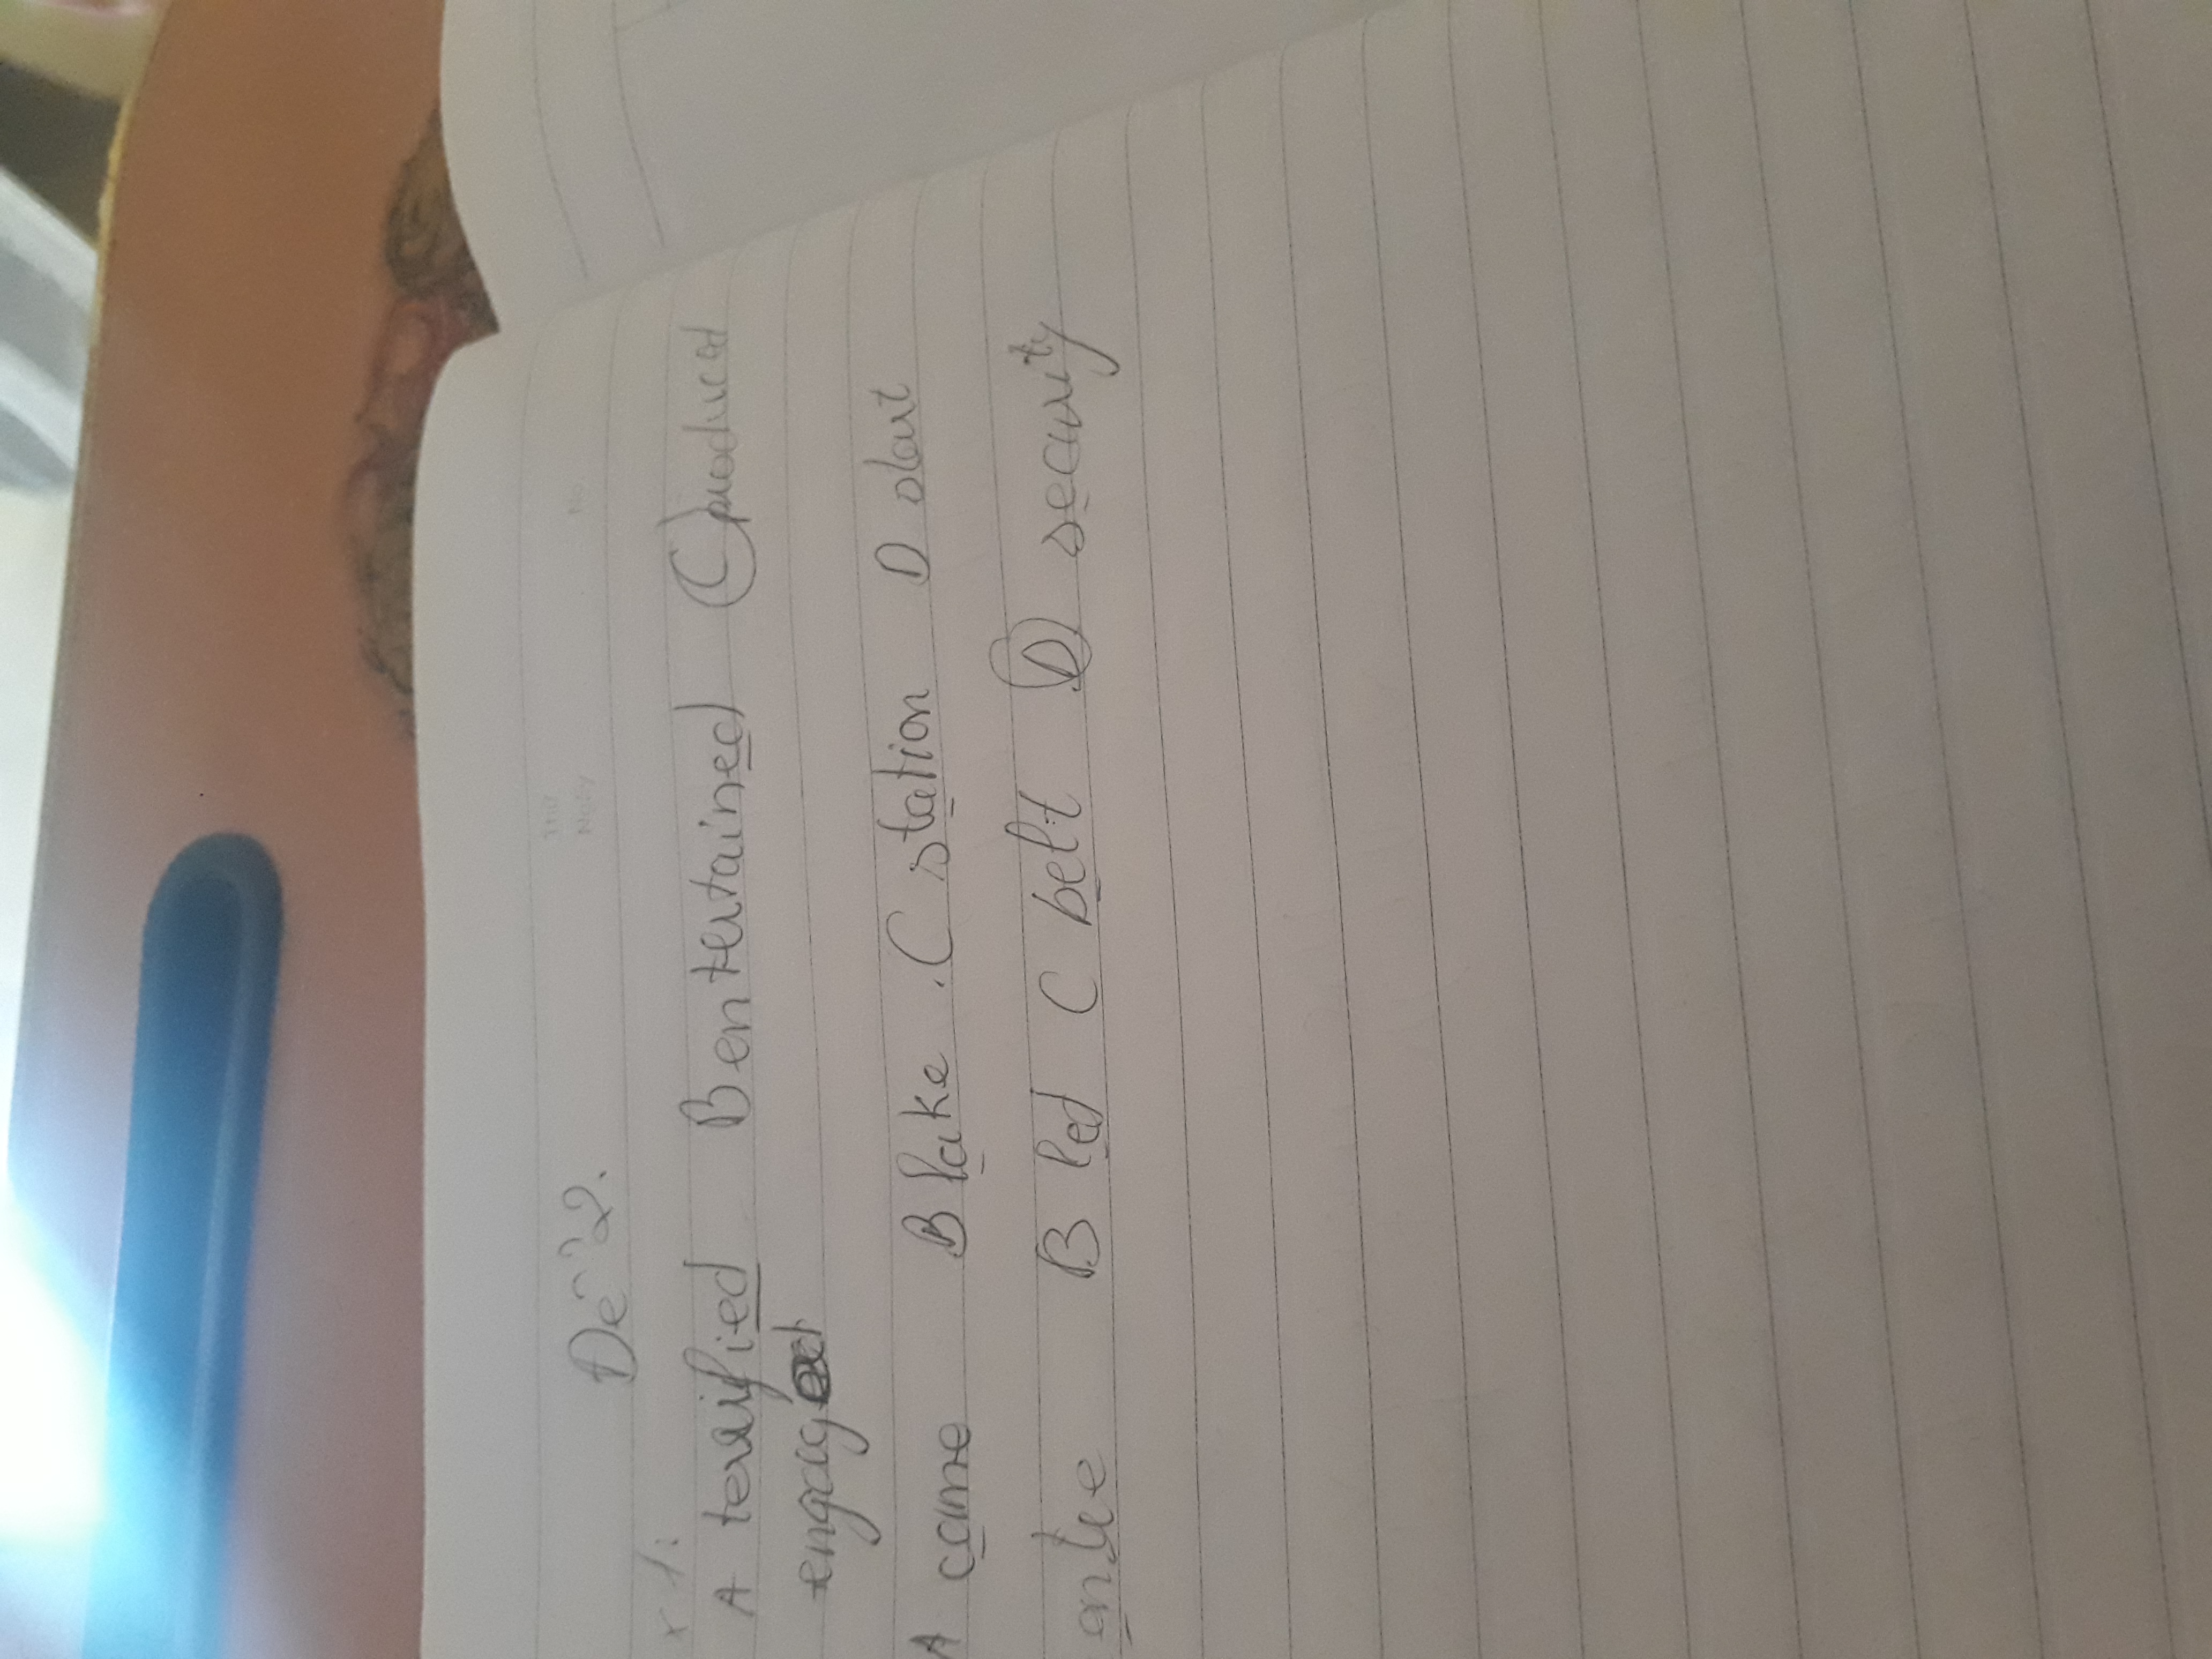 Đề 2.
x 1:
A terrified B entertained C produced
engaged
A came B lake . C station D dart
B led C belt D security